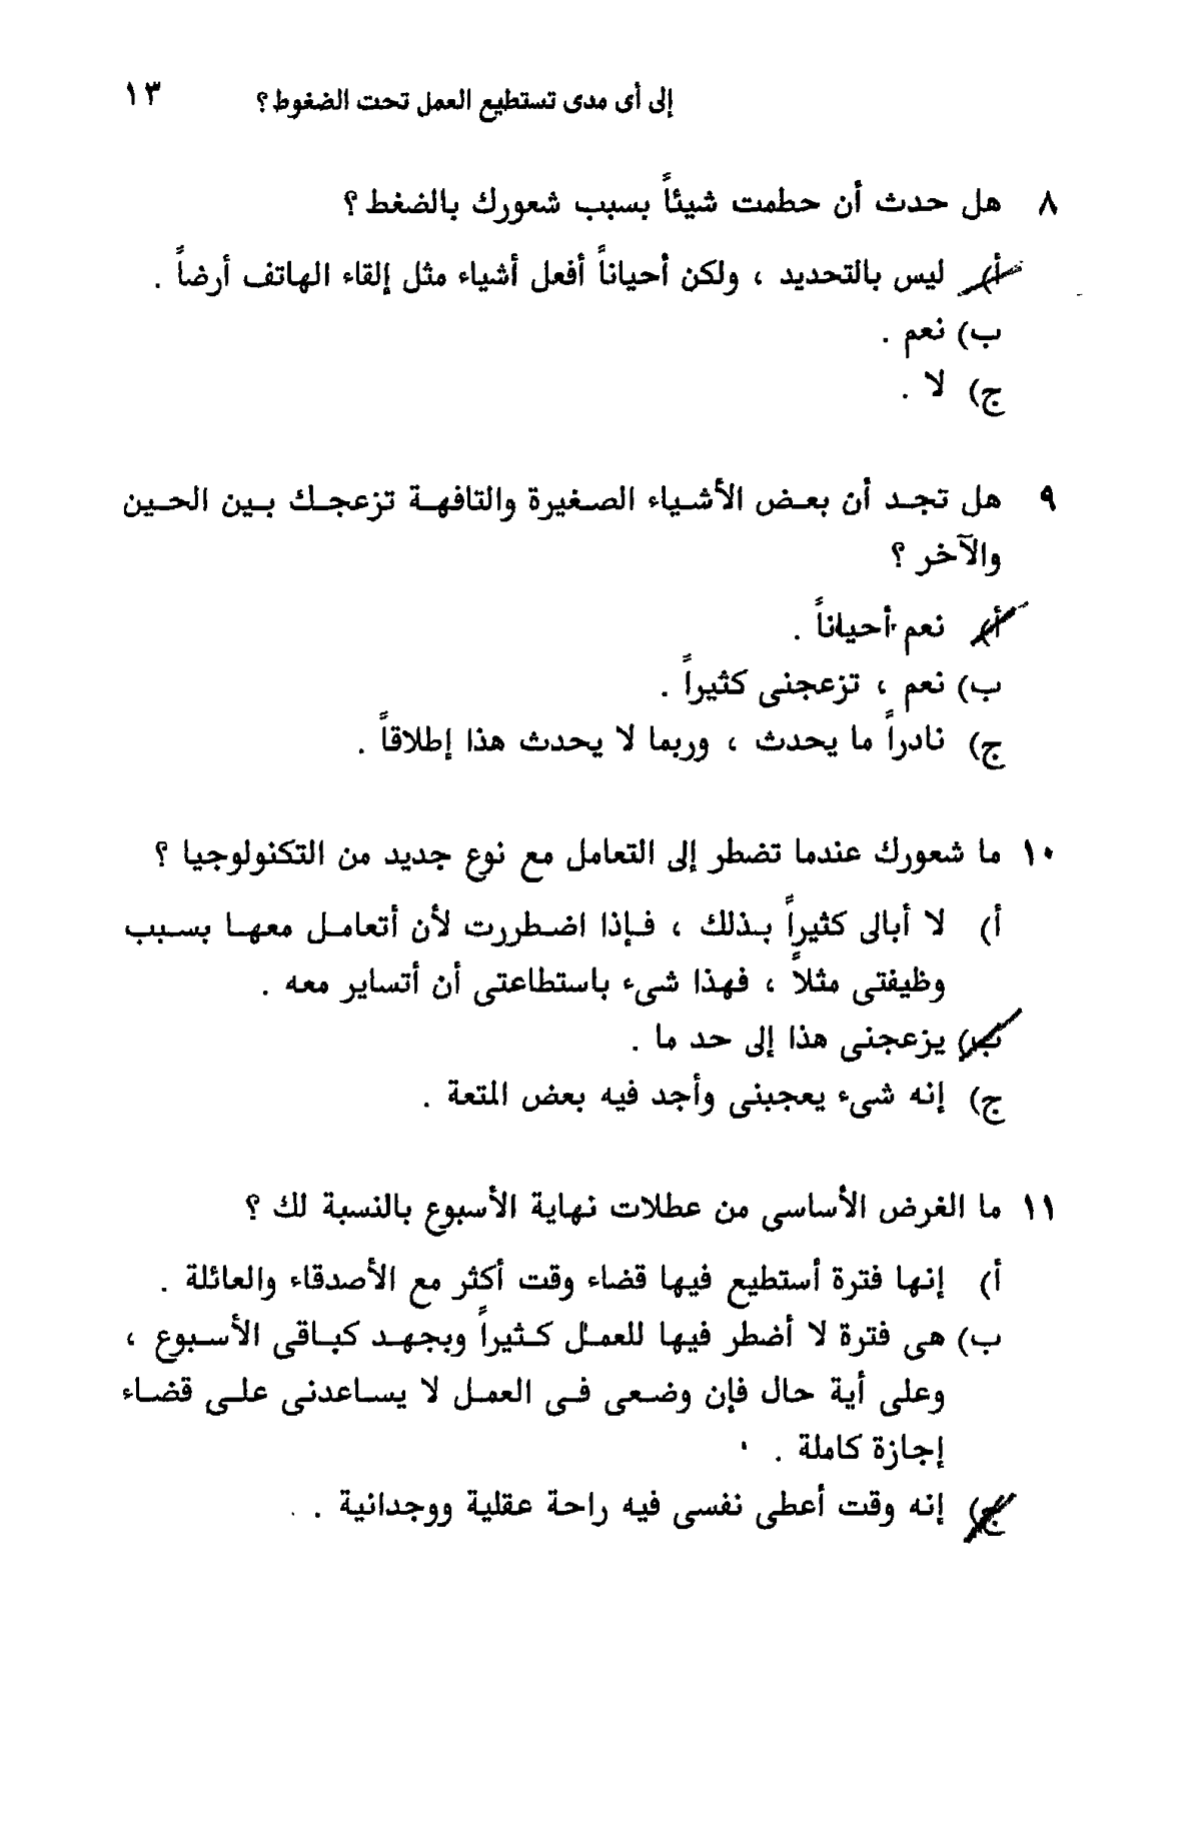 إلى أى مدى تستطيع العمل تحت الضغوط؟ ١٣
٨ هل حدث أن حطمت شيئاً بسبب شعورك بالضغط ؟
أ) ليس بالتحديد ، ولكن أحياناً أفعل أشياء مثل إلقاء الهاتف أرضاً .
ب) نعم .
ج) لا .
٩ هل تجـد أن بعـض الأشـياء الصـغيرة والتافهـة تزعجـك بـين الحـين
والآخر ؟
أ) نعم أحياناً .
ب) نعم ، تزعجنى كثيراً .
ج) نادراً ما يحدث ، وربما لا يحدث هذا إطلاقاً .
١٠ ما شعورك عندما تضطر إلى التعامل مع نوع جديد من التكنولوجيا ؟
أ) لا أبالى كثيراً بـذلك ، فـإذا اضـطررت لأن أتعامـل معهـا بسـبب
وظيفتى مثلاً ، فهذا شىء باستطاعتى أن أتساير معه .
ب) يزعجنى هذا إلى حد ما .
ج) إنه شىء يعجبنى وأجد فيه بعض المتعة .
١١ ما الغرض الأساسى من عطلات نهاية الأسبوع بالنسبة لك ؟
أ) إنها فترة أستطيع فيها قضاء وقت أكثر مع الأصدقاء والعائلة .
ب) هى فترة لا أضطر فيها للعمـل كـثيراً وبجهـد كبـاقى الأسـبوع ،
وعلى أية حال فإن وضـعى فـى العمـل لا يسـاعدنى علـى قضـاء
إجازة كاملة .
ج) إنه وقت أعطى نفسى فيه راحة عقلية ووجدانية .